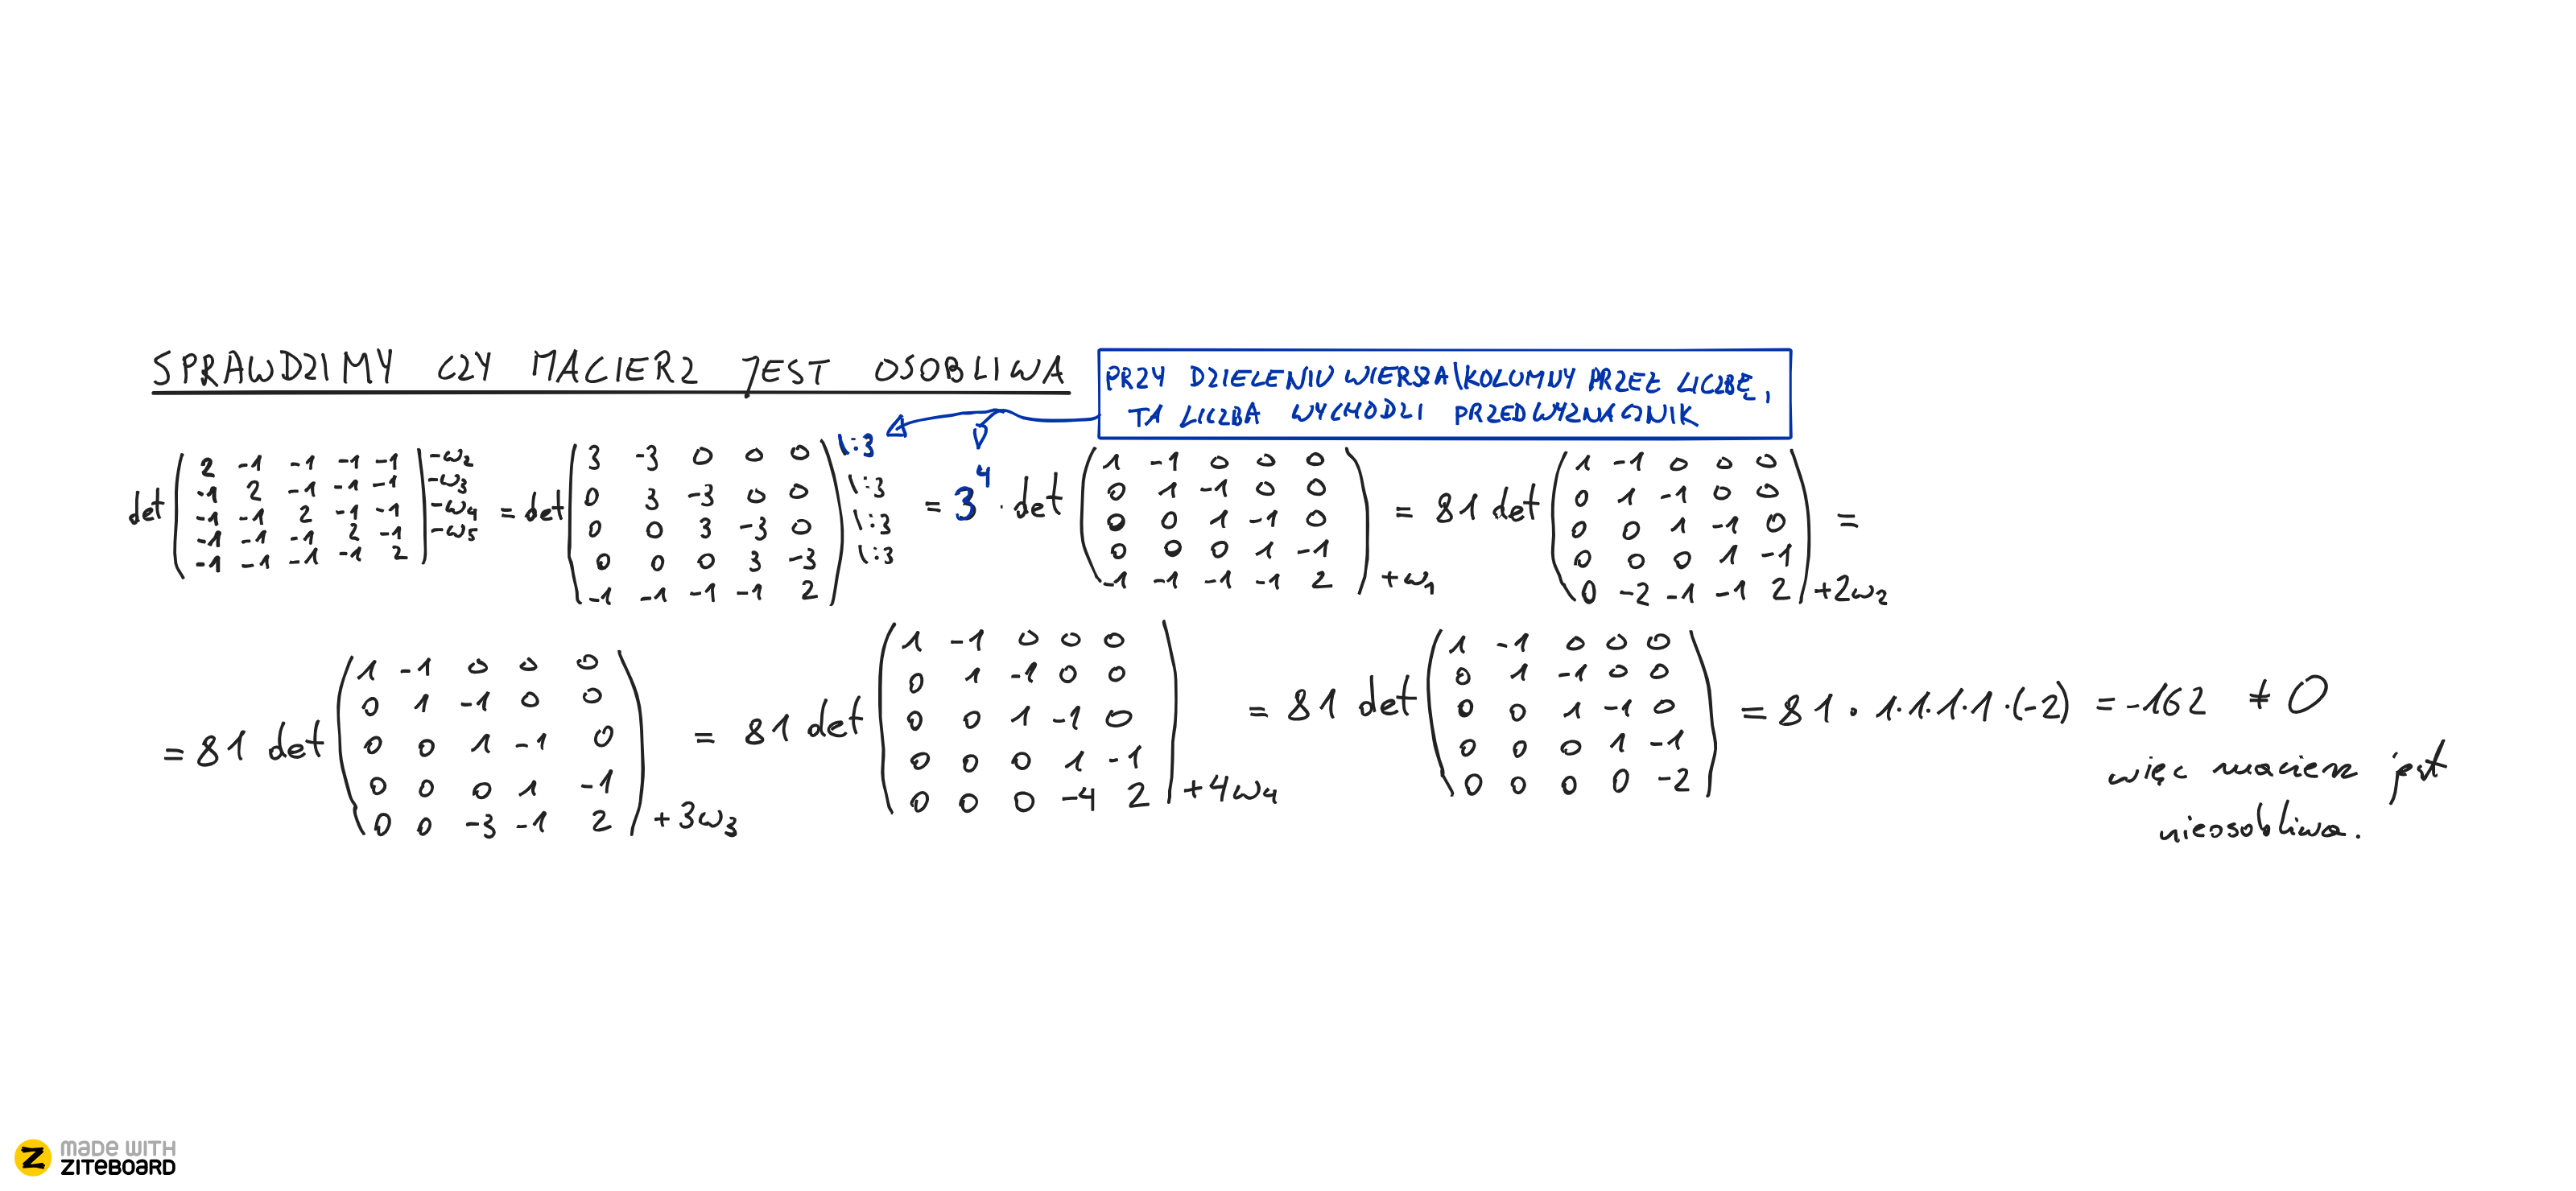 SPRAWDZIMY CZY MACIERZ JEST OSOBLIWA
PRZY DZIELENIU WIERSZA\KOLUMNY PRZEZ LICZBĘ,
TA LICZBA WYCHODZI PRZED WYZNACZNIK
det ( 2 -1 -1 -1 -1 | -w₂
-1 2 -1 -1 -1 | -w₃
-1 -1 2 -1 -1 | -w₄
-1 -1 -1 2 -1 | -w₅
-1 -1 -1 -1 2 )
= det ( 3 -3 0 0 0 \:3
0 3 -3 0 0 \:3
0 0 3 -3 0 \:3
0 0 0 3 -3 \:3
-1 -1 -1 -1 2 )
= 3⁴ · det ( 1 -1 0 0 0
0 1 -1 0 0
0 0 1 -1 0
0 0 0 1 -1
-1 -1 -1 -1 2 ) +w₁
= 81 det ( 1 -1 0 0 0
0 1 -1 0 0
0 0 1 -1 0
0 0 0 1 -1
0 -2 -1 -1 2 ) +2w₂ =
= 81 det ( 1 -1 0 0 0
0 1 -1 0 0
0 0 1 -1 0
0 0 0 1 -1
0 0 -3 -1 2 ) +3w₃
= 81 det ( 1 -1 0 0 0
0 1 -1 0 0
0 0 1 -1 0
0 0 0 1 -1
0 0 0 -4 2 ) +4w₄
= 81 det ( 1 -1 0 0 0
0 1 -1 0 0
0 0 1 -1 0
0 0 0 1 -1
0 0 0 0 -2 )
= 81 · 1·1·1·1·(-2) = -162 ≠ 0
więc macierz jest
nieosobliwa.
made with
ZITEBOARD